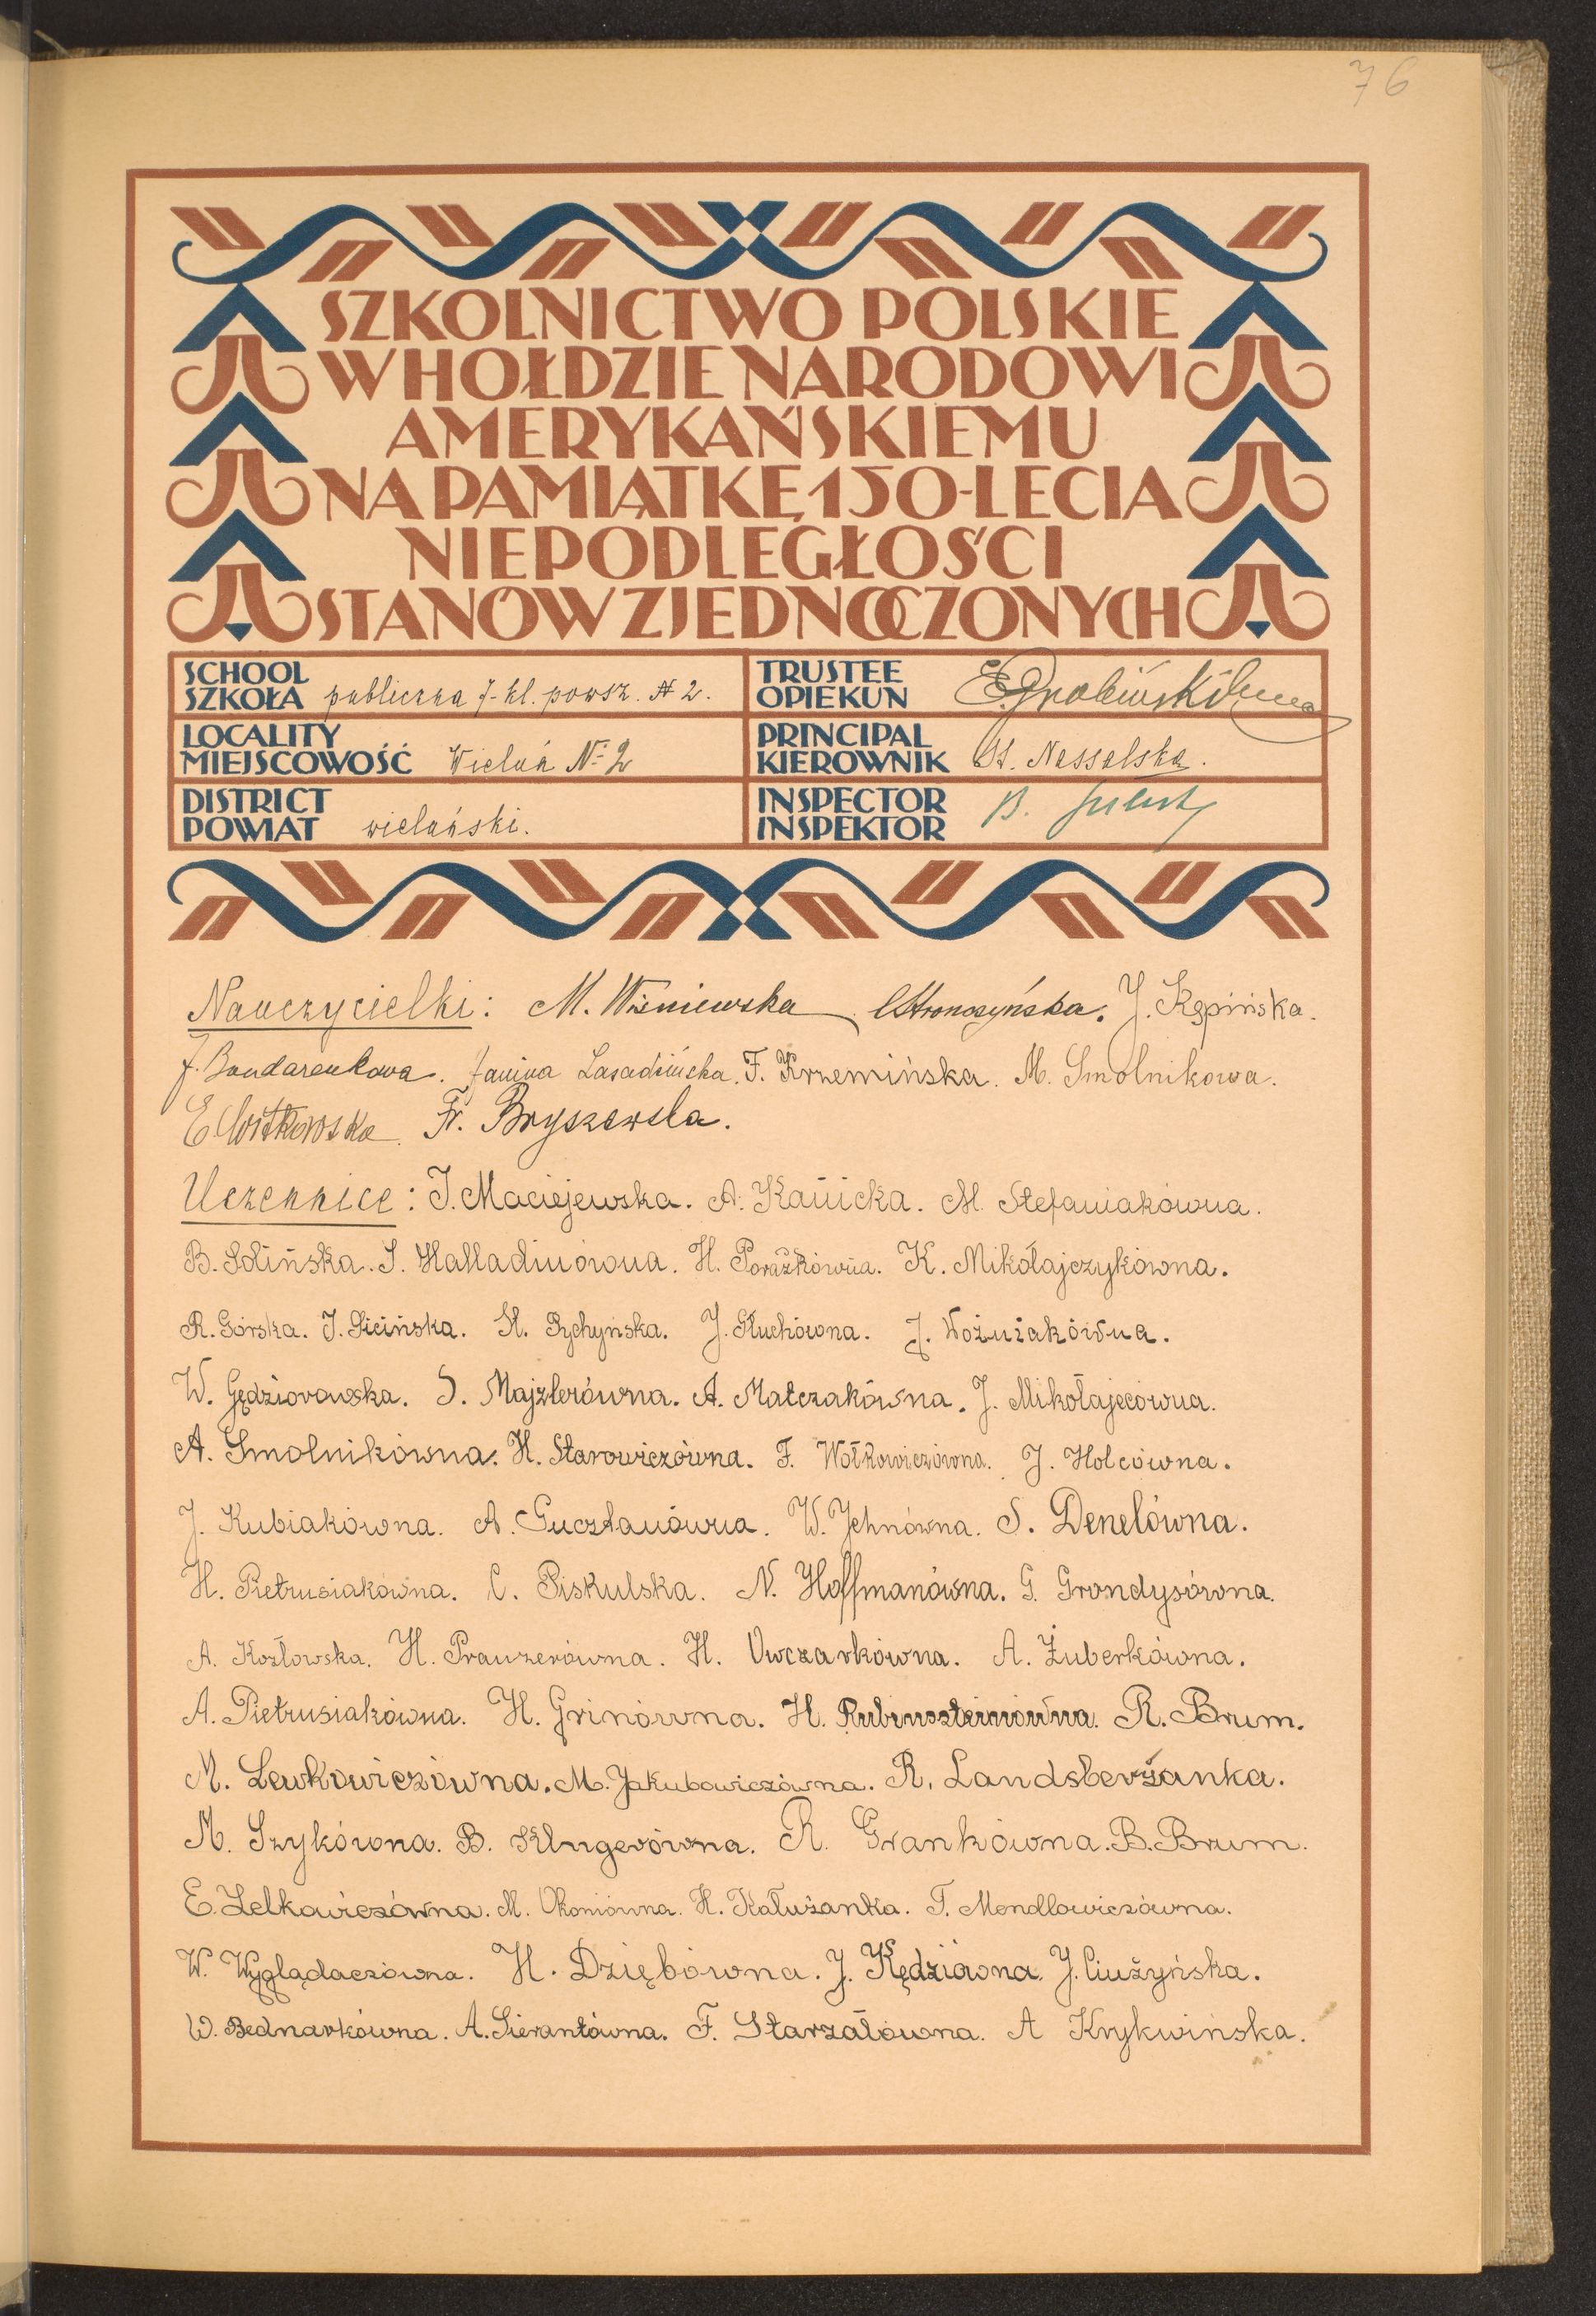 76
SZKOLNICTWO POLSKIE
W HOŁDZIE NARODOWI
AMERYKAŃSKIEMU
NA PAMIĄTKĘ 150-LECIA
NIEPODLEGŁOŚCI
STANÓW ZJEDNOCZONYCH
SCHOOL
SZKOŁA publiczna 7-kl. powsz. № 2.
TRUSTEE
OPIEKUN
LOCALITY
MIEJSCOWOŚĆ Wieluń № 2
PRINCIPAL
KIEROWNIK St. Nesselska.
DISTRICT
POWIAT wieluński.
INSPECTOR
INSPEKTOR B.
Nauczycielki: M. Wiśniewska Stronczyńska. J. Kępińska.
J. Bondarenkowa. Janina F. Krzemińska. M. Smolnikowa.
E. Witkowska. Fr. Bryszewska.
Uczennice: J. Maciejewska. A. Kanicka. M. Stefaniakówna.
B. Solińska. S. Halladinówna. H. Porażkówna. K. Mikołajczykówna.
R. Górska. J. Sicińska. H. Rychyńska. J. Głuchówna. J. Woźniakówna.
W. Gędziorowska. S. Majzlerówna. A. Matczakówna. J. Mikołajecówna.
A. Smolnikówna. H. Starowiczówna. F. Wołkowiczówna. J. Holcówna.
J. Kubiakówna. A. Guczłanówna. W. Jehnówna. S. Denelówna.
H. Pietrusiakówna. C. Piskulska. N. Hoffmanówna. G. Grondysówna.
A. Kozłowska. H. Prauzerówna. H. Owczarkówna. A. Żuberkówna.
A. Pietrusiakówna. H. Grinówna. H. Rubinszteinówna. R. Brum.
M. Lewkowiczówna. M. Jakubowiczówna. R. Landsberżanka.
M. Szykówna. B. Klugerówna. R. Grankówna. B. Brum.
E. Zelkowiczówna. M. Okoniówna. H. Kałużanka. T. Mendlowiczówna.
W. Wyglądaczówna. H. Dziębówna. J. Kędziówna. J. Ciużyńska.
W. Bednarkówna. A. Sierantówna. F. Starzałówna. A Krykwińska.